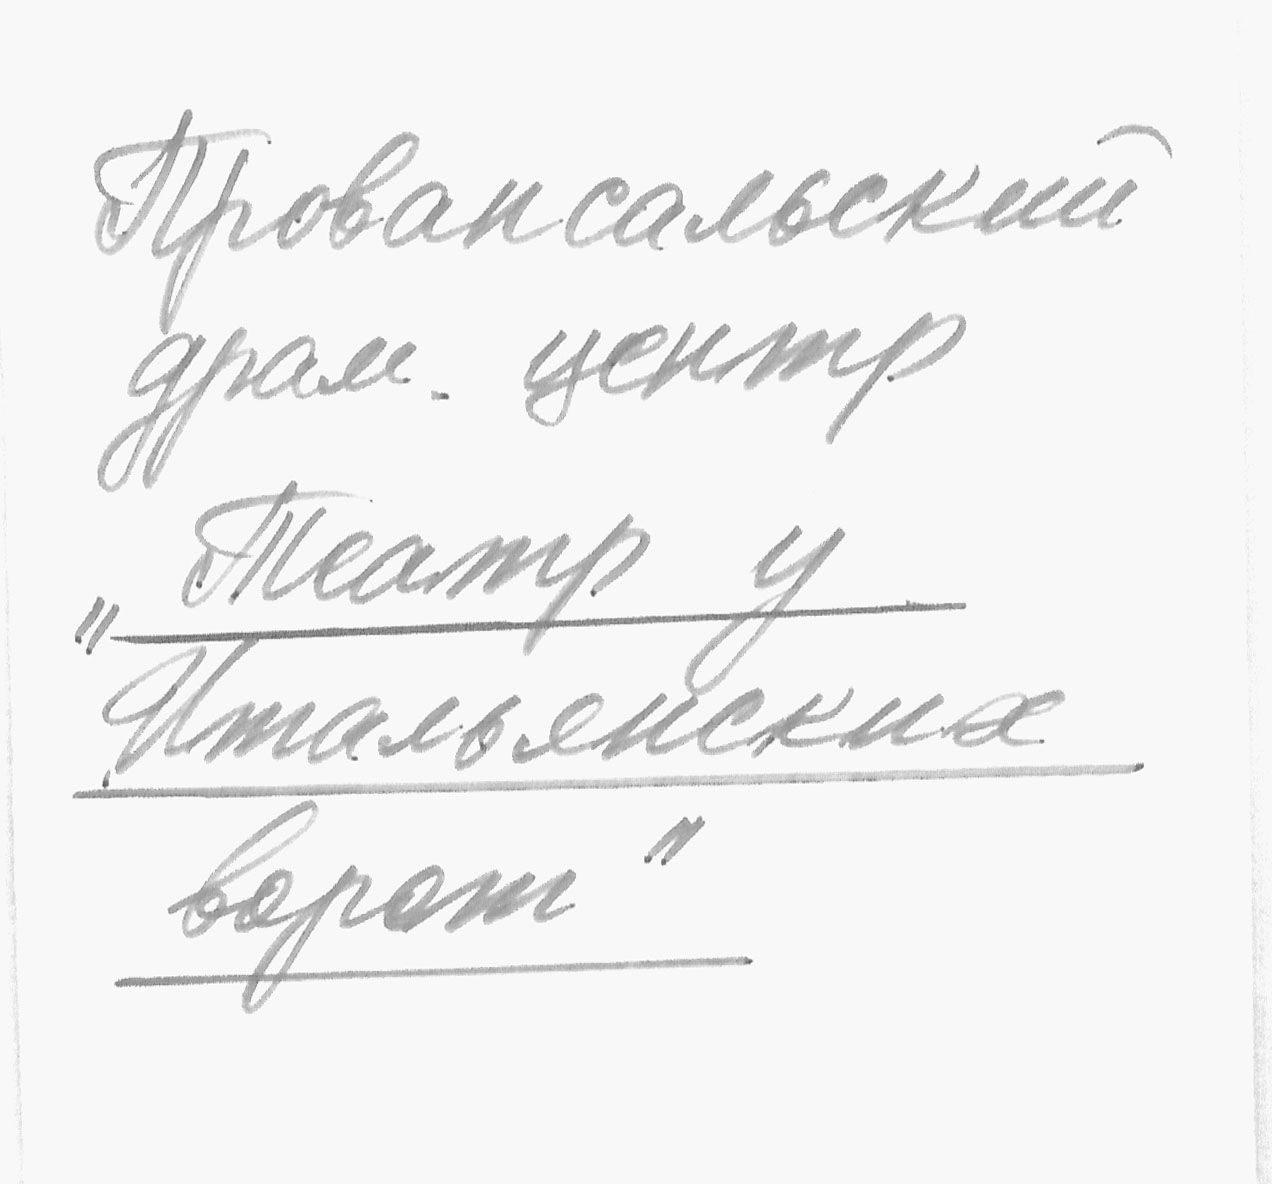 Провансальский
драм. центр
„Театр у
Итальянских
ворот"